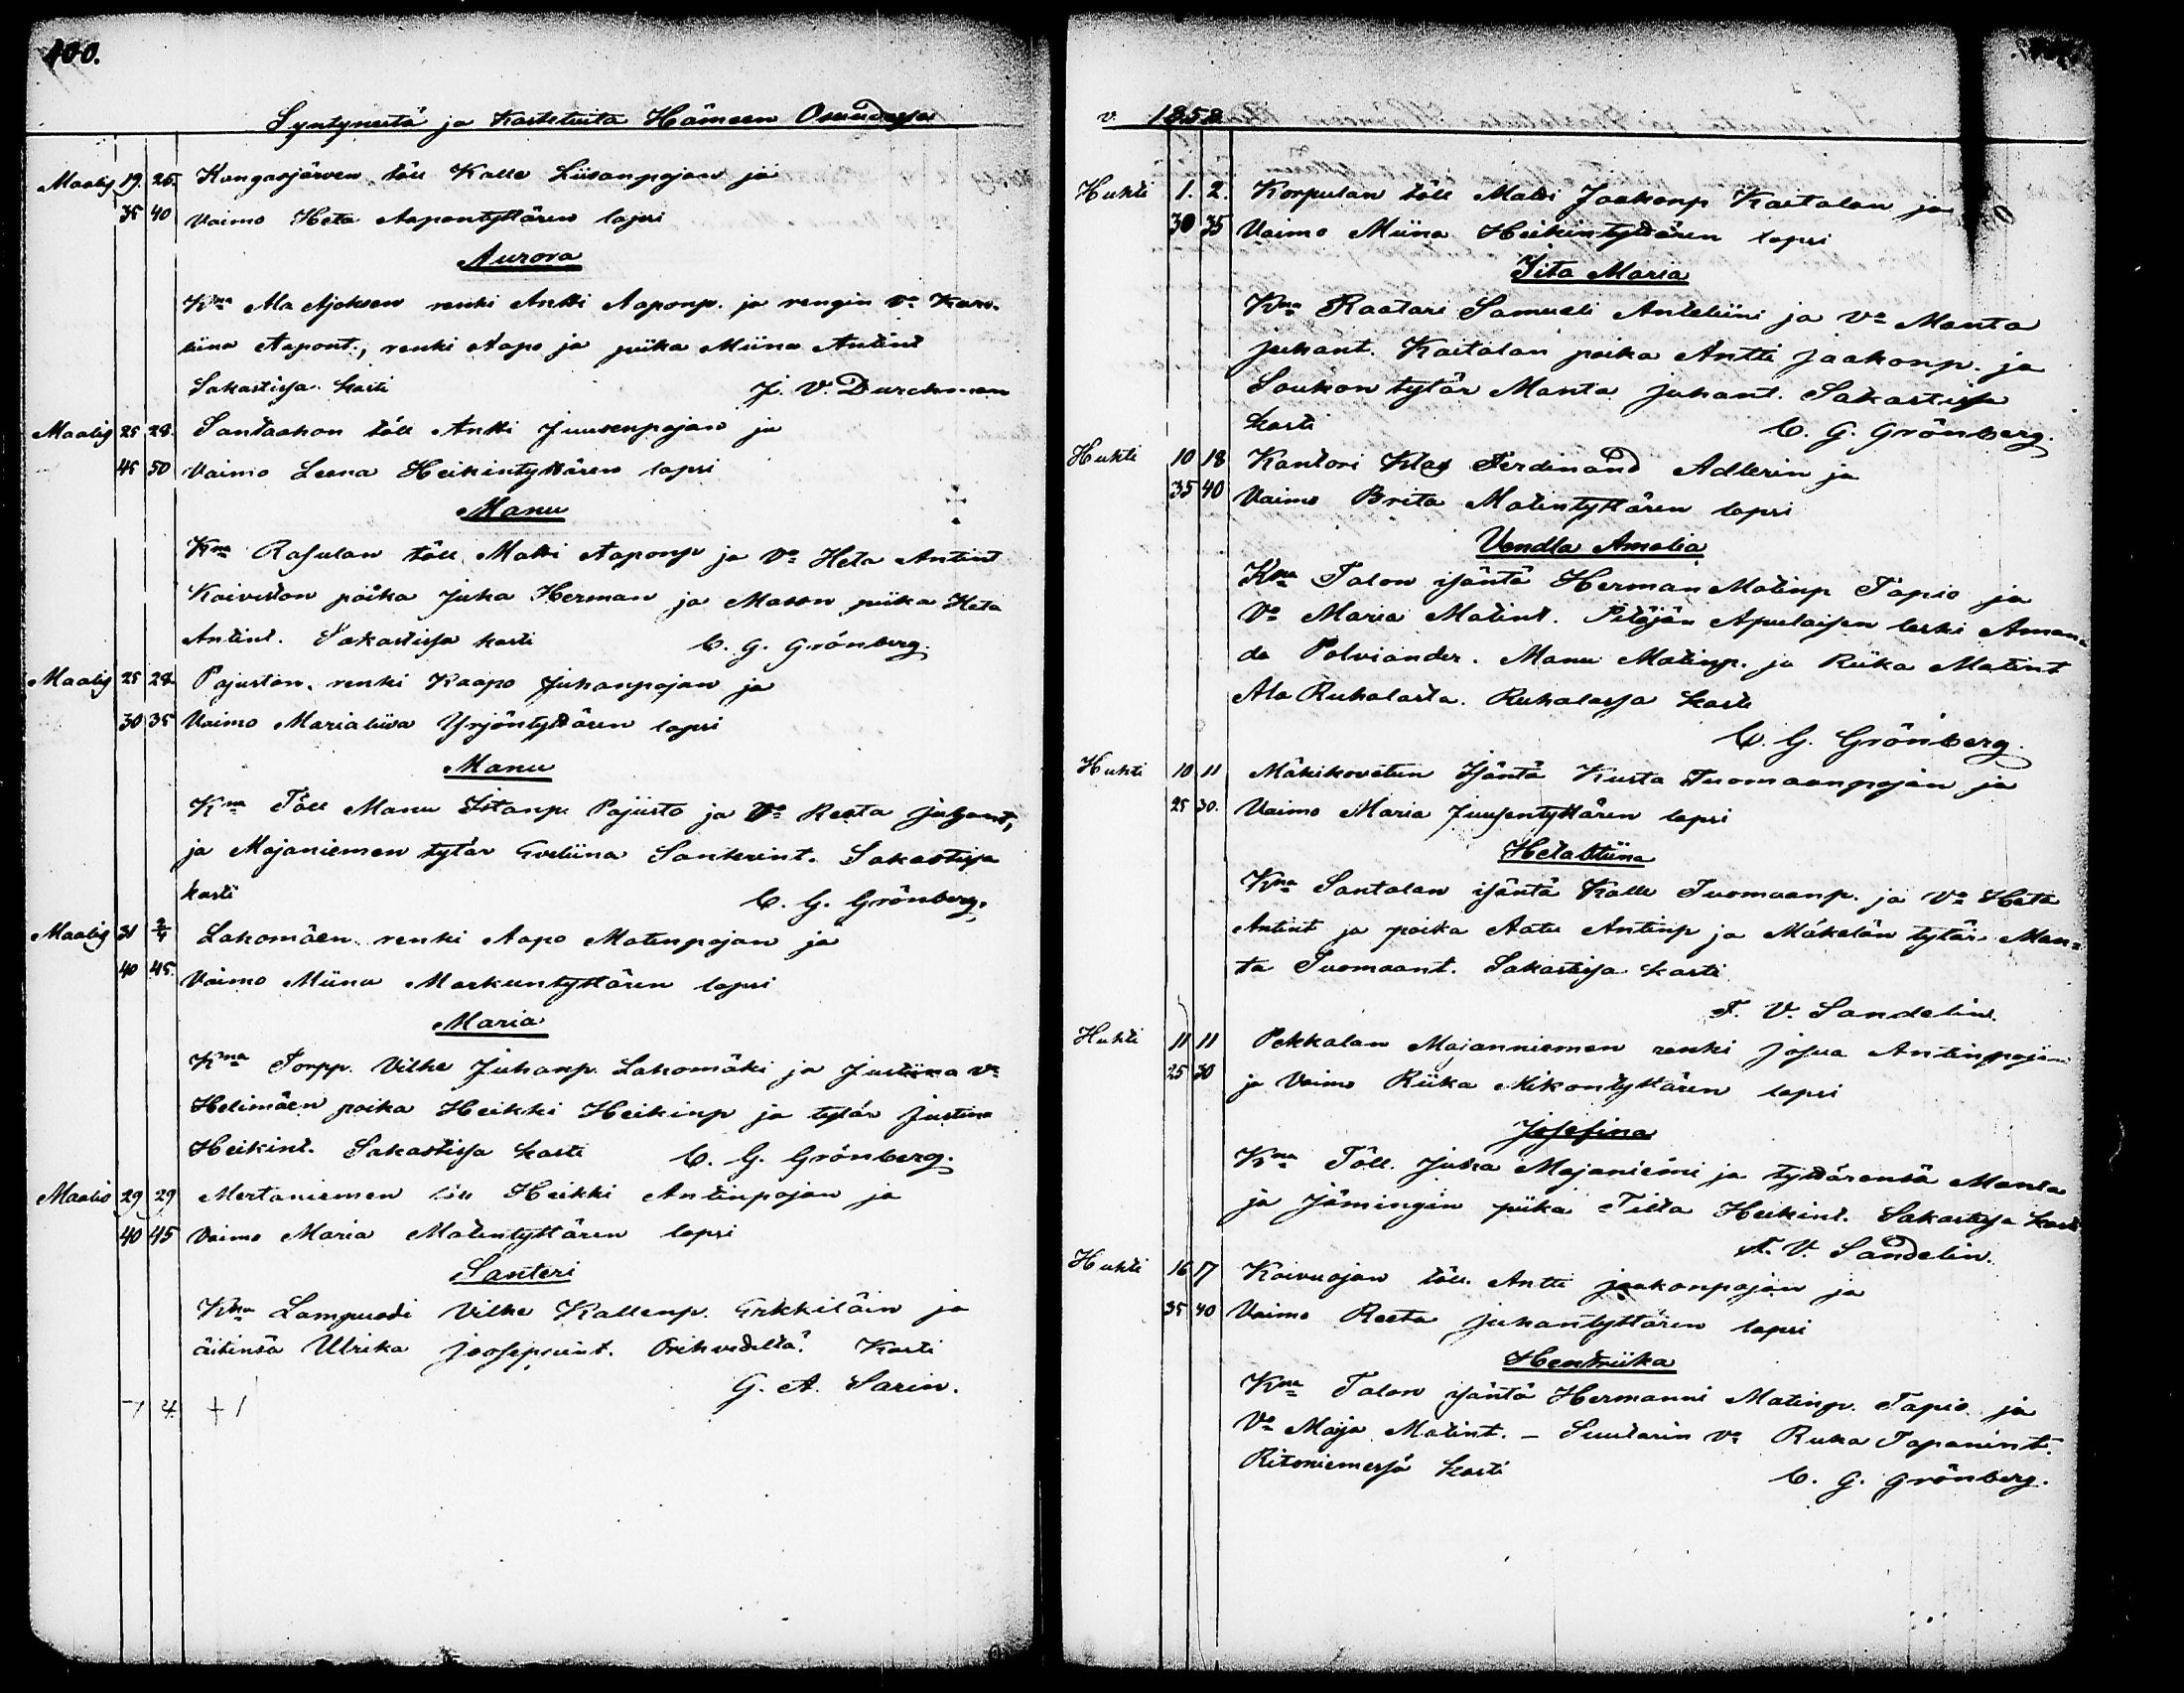 100.
Syntyneitä ja kastetuita Hämeen Osuudessa
Maalis 19. 25. Kangasjärven töll Kalle Liisanpojan ja
35 40 Vaimo Heta Aapontyttären lapsi
Aurora
Kna Ala Ajoksen renki Antti Aaponp. ja rengin vo Karo-
liina Aapont., renki Aapo ja piika Miina Antint
Sakastissa kasti J. V. Durchman
Maalis 25 28. Santaahon töll Antti Juusenpojan ja
45 50 Vaimo Leena Heikintyttären lapsi
Manu
Kna Rasulan töll Matti Aaponp ja Vo Heta Antint
Koiviston poika Juka Herman ja Mason piika Heta
Antint. Sakastissa kasti C. G. Grönberg.
Maalis 25 28. Pajuston renki Kaapo Juhanpojan ja
30 35 Vaimo Marialiisa Yrjöntyttären lapsi
Manu
Kna Töll Manu Pajusto ja Vo Reeta juhant,
ja Majaniemen tytär Eveliina Santerint. Sakastissa
kasti C. G. Grönberg.
Maalis 31 2/4 Lahomäen renki Aapo Matinpojan ja
40 45. Vaimo Miina Markuntyttären lapsi
Maria
Kna Torpp. Vilhe Juhanp. Lahomäki ja Justiina vo
Helimäen poika Heikki Heikinp ja tytär Justina
Heikint. Sakastissa kasti C. G. Grönberg.
Maalis 29 29 Mertaniemen töll Heikki Antinpojan ja
40 45 Vaimo Maria Matintyttären lapsi
Santeri
Kna Lampuodi Vilhe Kallenp. Erkkiläin ja
äitinsä Ulrika Joosepint. Orihvedeltä. Kasti
G. A. Sarin.
7 4. + 1
v. 1858
Huhti 1. 2. Korpulan töll Matti Jaakonp Kaitalan ja
30 35 Vaimo Miina Heikintyttären lapsi
Iita Maria
Kna Raatari Samueli Anteliini ja Vo Manta
juhant. Kaitalan poika Antti Jaakonp. ja
Soukon tytär Manta Juhant. Sakastissa
kasti C. G. Grönberg.
Huhti 10 18 Kantori Klas Ferdinand Adlerin ja
35 40 Vaimo Brita Matintyttären lapsi
Vendla Amalia
Kna Talon isäntä Herman Matinp Tapio ja
Vo Maria Matint. Pitäjän Apulaisen leski Aman-
da Polviander. Manu Matinp. ja Riika Matint
Ala Ruhalasta. Ruhalassa kasti
C. G. Grönberg.
Huhti 10 11 Mäkikovetun Isäntä Kusta Tuomaanpojan ja
25 30. Vaimo Maria Juusentyttären lapsi
Hetastiina
Kna Santalan isäntä Kalle Tuomaanp. ja Vo Heta
Antint ja poika Aatu Antinp ja Mäkelän tytär Man=
ta Tuomaant. Sakastissa kasti
F. V. Sandelin.
Huhti 11 11 Pekkalan Majanniemen renki Josua Antinpojan
25 30 ja Vaimo Riika Mikontyttären lapsi
Josefina
Kna Töll. Juha Majaniemi ja tyttärensä Manta
ja Jämingin piika Tilta Heikint. Sakastissa kasti
F. V. Sandelin.
Huhti 16 17 Koivuojan töll. Antti jaakonpojan ja
35 40 Vaimo Reeta Juhantyttären lapsi
Hentriika
Kna Talon isäntä Hermanni Matinp. Tapio ja
Vo Maija Matint. – Suutarin vo Ruka Tapanint.
Ritoniemessä kasti C. G. Grönberg.